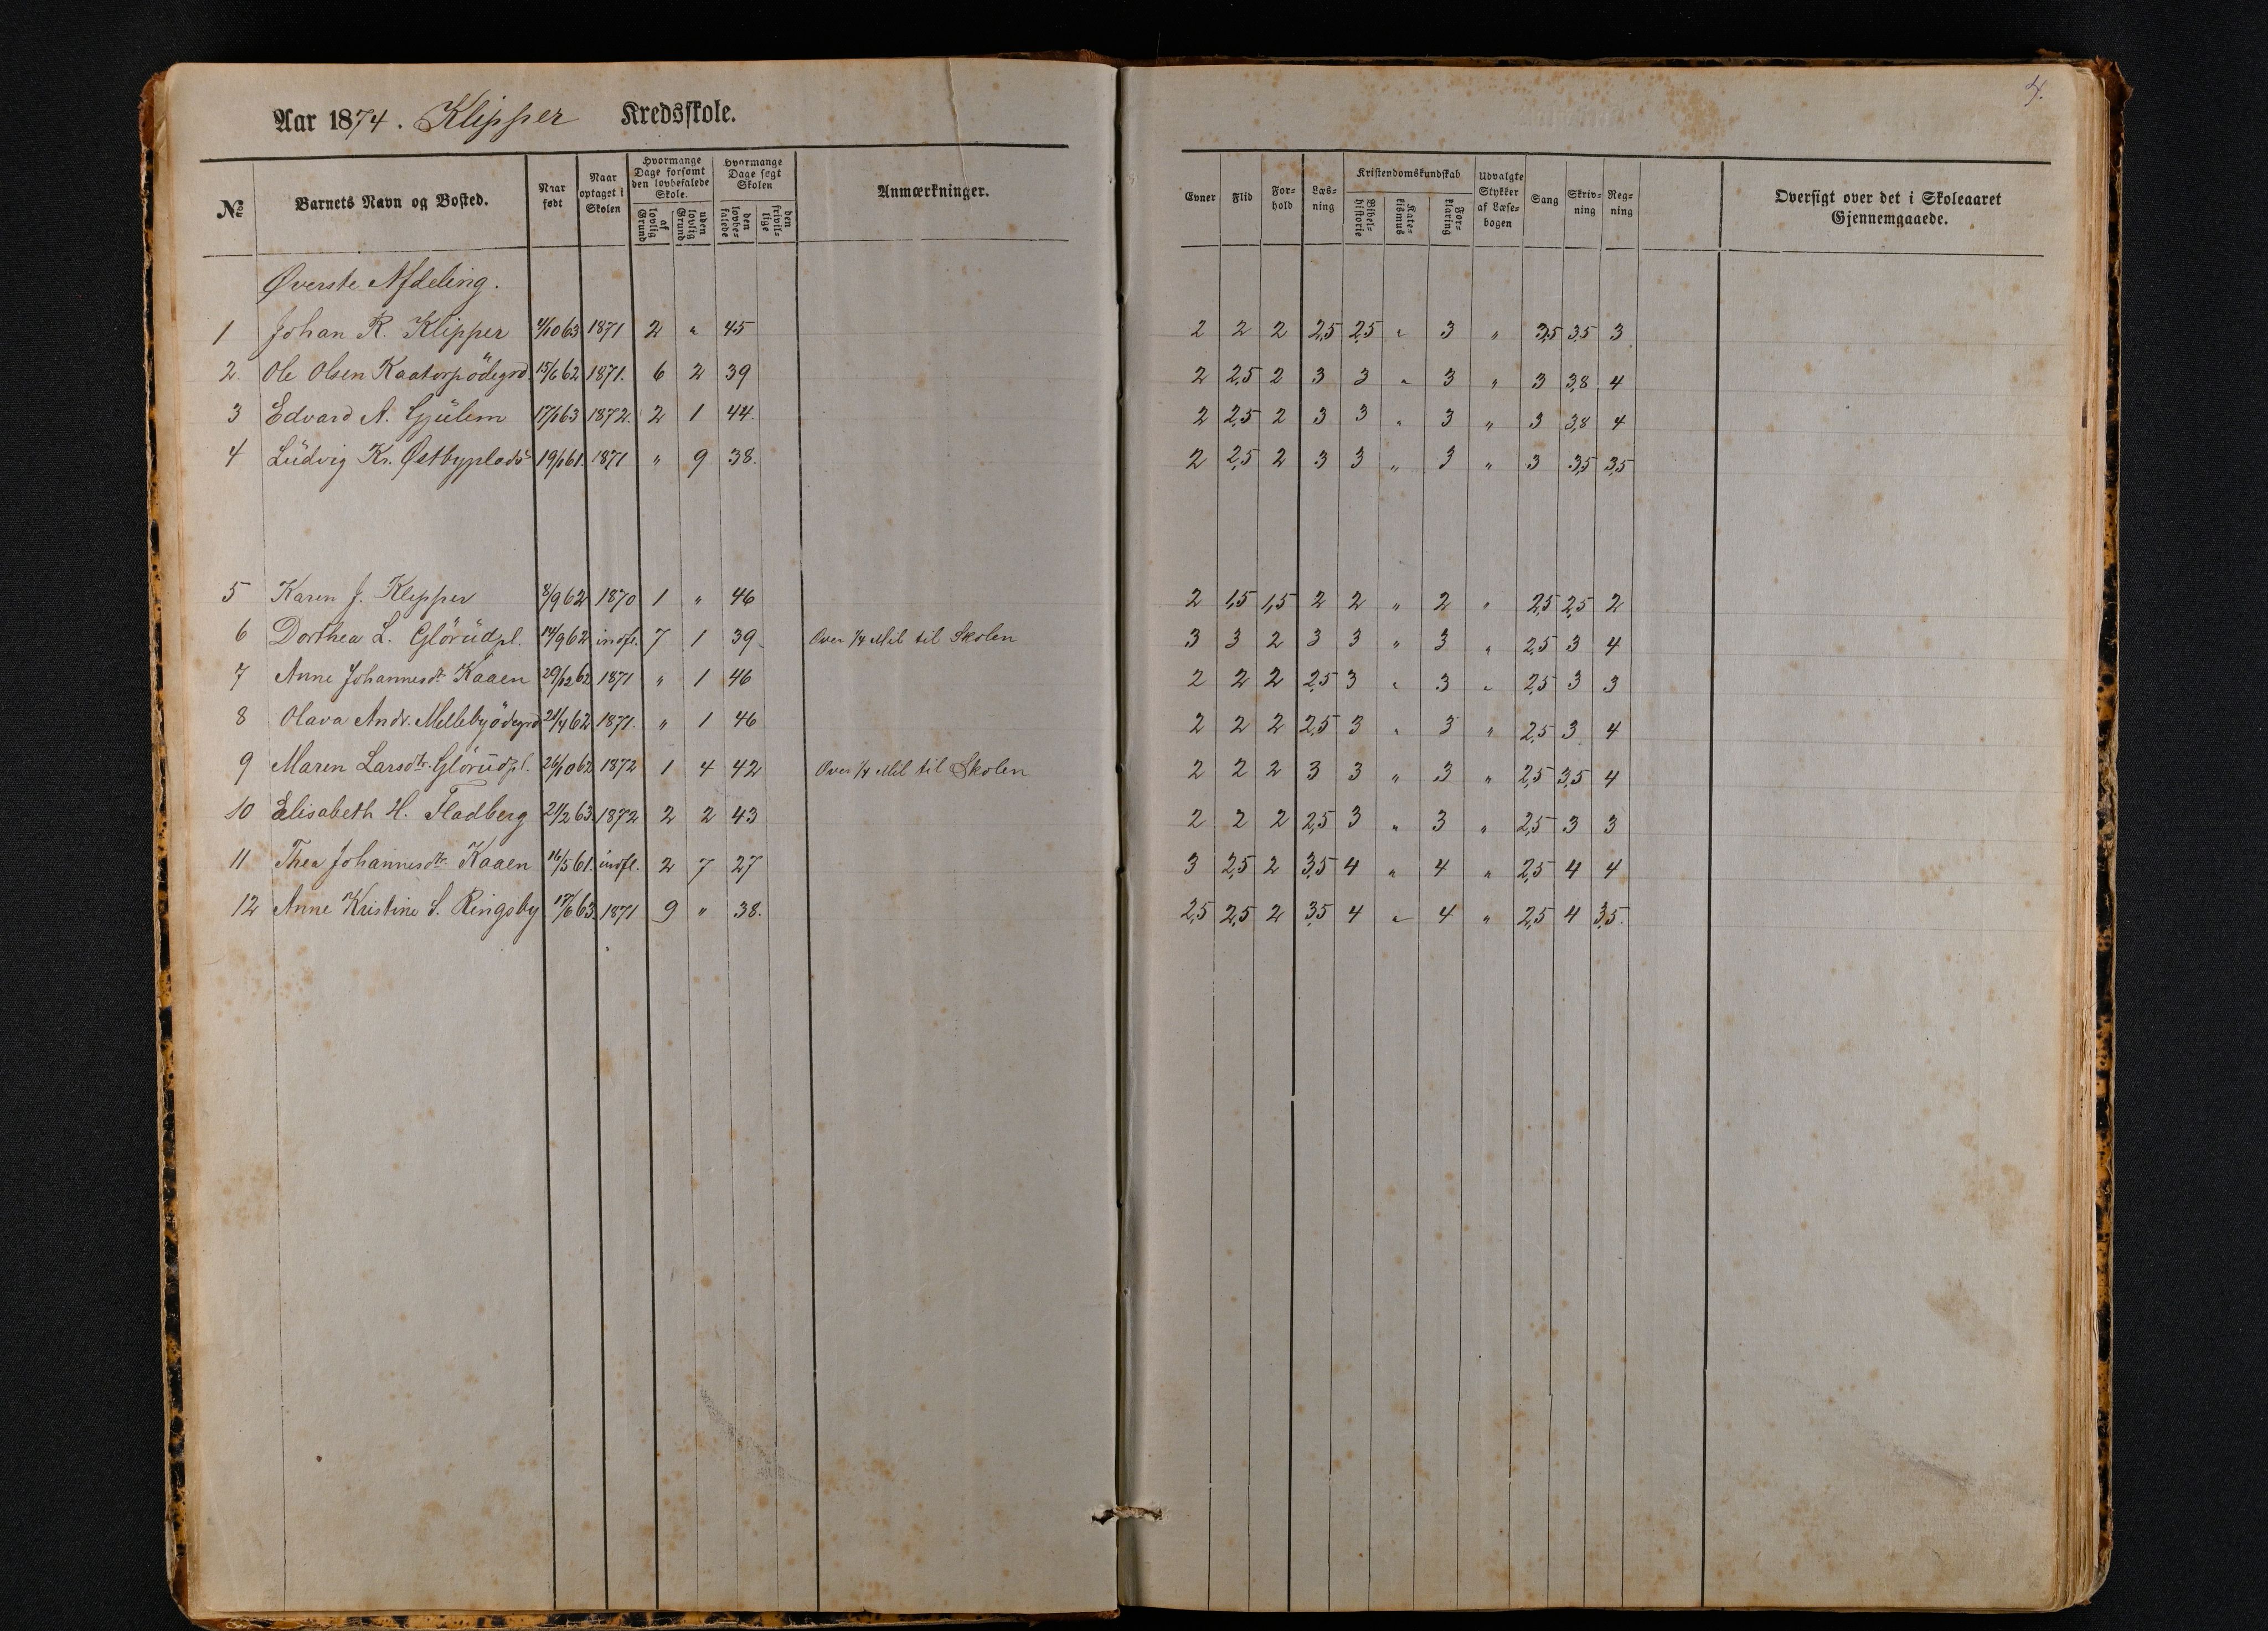 Aar 1874. Klipper Kredsskole.
№ Barnets Navn og Bosted. Naar født Naar optaget i Skolen Hvormange Dage forsømt den lovbefalede Skole. af lovlig Grund uden lovlig Grund Hvormange Dage søgt Skolen den lovbefalede den frivillige Anmærkninger.
Evner Flid Forhold Læsning Kristendomskundskab Bibelhistorie Katekismus Forklaring Udvalgte Stykker af Læsebogen Sang Skrivning Regning Oversigt over det i Skoleaaret Gjennemgaaede.
4.
Øverste Afdeling.
1 Johan R. Klipper 4/10 63 1871 2 " 45 2 2 2 2,5 2,5 " 3 " 3,5 3,5 3
2. Ole Olsen Kaatorpödegrd. 15/6 62 1871. 6 2 39 2 2,5 2 3 3 " 3 " 3 3,8 4
3 Edvard A. Gjülem 17/6 63 1872. 2 1 44. 2 2,5 2 3 3 " 3 " 3 3,8 4
4 Lüdvig Kr. Østbyplads 19/1 61. 1871 " 9 38. 2 2,5 2 3 3 " 3 " 3 3,5 3,5
5 Karen J. Klipper 8/9 62 1870 1 " 46 2 1,5 1,5 2 2 " 2 " 2,5 2,5 2
6 Dorthea L. Glörüdpl. 14/9 62 indfl. 7 1 39 Over 1/4 Mil til Skolen 3 3 2 3 3 " 3 " 2,5 3 4
7 Anne Johannesdtr Kaaen 29/12 62 1871 " 1 46 2 2 2 2,5 3 " 3 " 2,5 3 3
8 Olava Andr. Mellebyödegrd 21/4 62 1871. " 1 46 2 2 2 2,5 3 " 3 " 2,5 3 4
9 Maren Larsdtr. Glörüdpl. 26/10 62 1872 1 4 42 Over 1/4 Mil til Skolen 2 2 2 3 3 " 3 " 2,5 3,5 4
10 Elisabeth H. Fladberg 21/2 63 1872 2 2 43 2 2 2 2,5 3 " 3 " 2,5 3 3
11 Thea Johannesdtr. Kaaen 16/5 61. indfl. 2 7 27 3 2,5 2 3,5 4 " 4 " 2,5 4 4
12 Anne Kristine S. Ringsby 17/6 63 1871 9 " 38. 2,5 2,5 2 3,5 4 " 4 " 2,5 4 3,5.